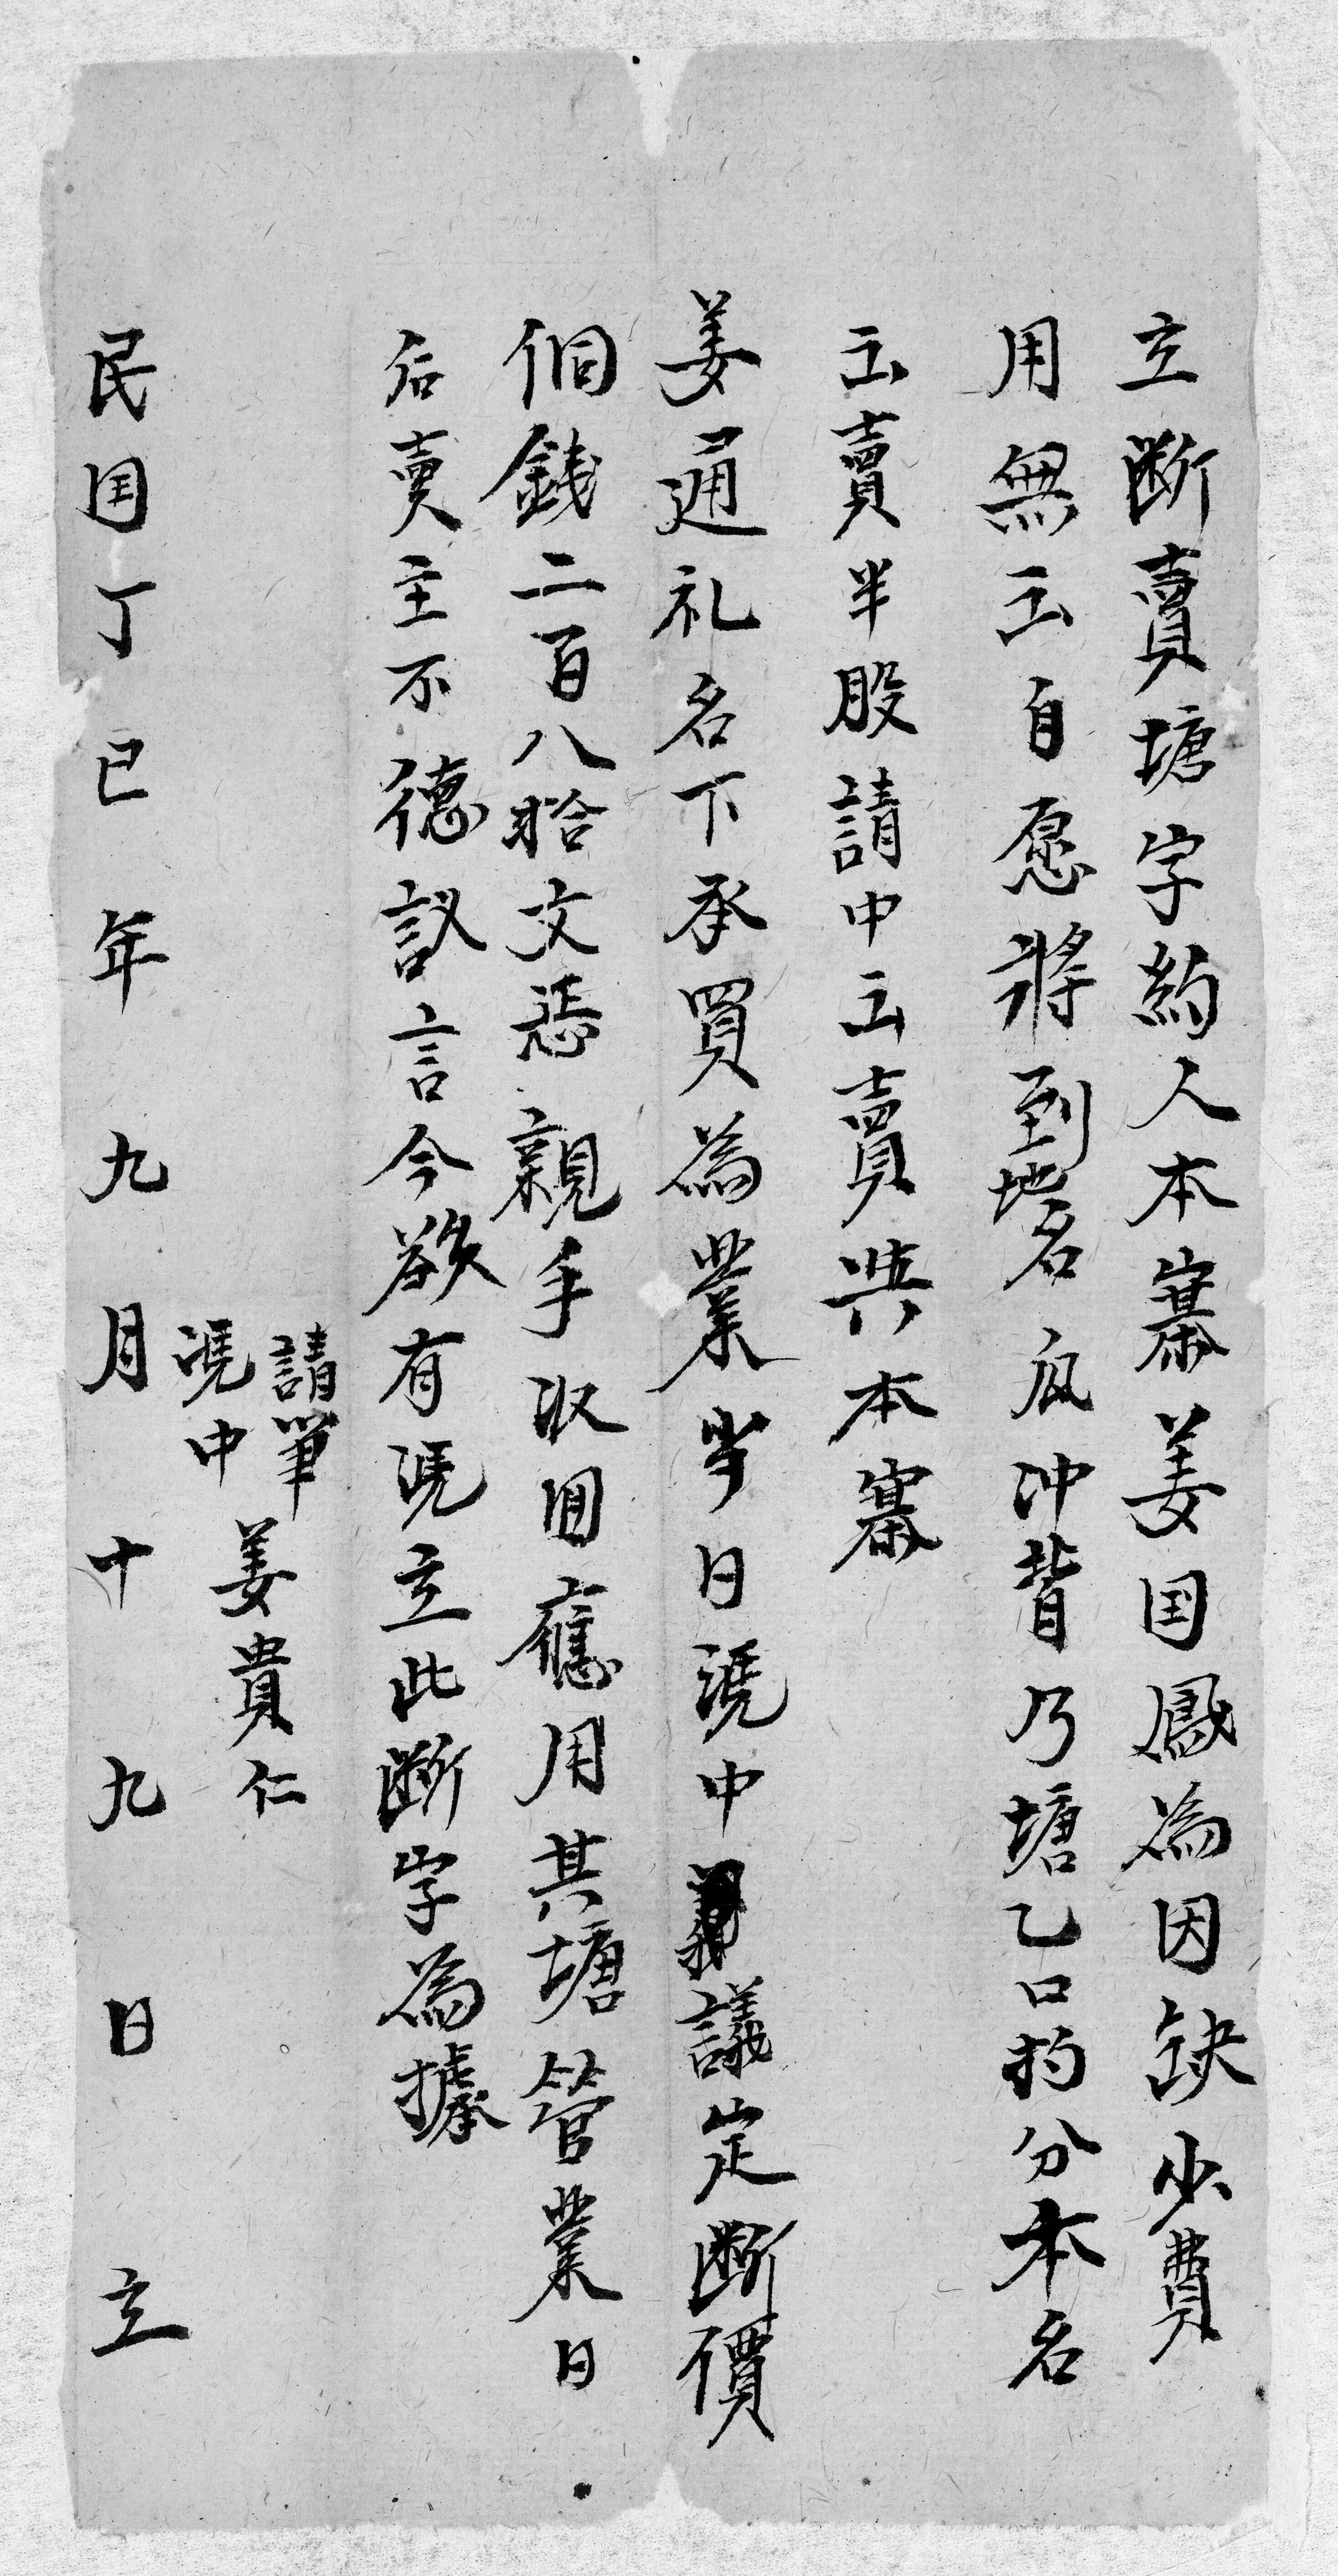 立断賣塘字約人本寨姜囯鳳為因缺少費
用無出自愿將到地名瓜冲背乃塘乙口均分本名
出賣半股請中出賣與本寨
姜通礼名下承買為業当日凴中議定断價
個錢二百八拾文恁親手収回應用其塘管業日
后賣主不德訟言今欲有凴立此断字為據
請筆
凴中
姜貴仁
民囯丁巳年九月十九日立